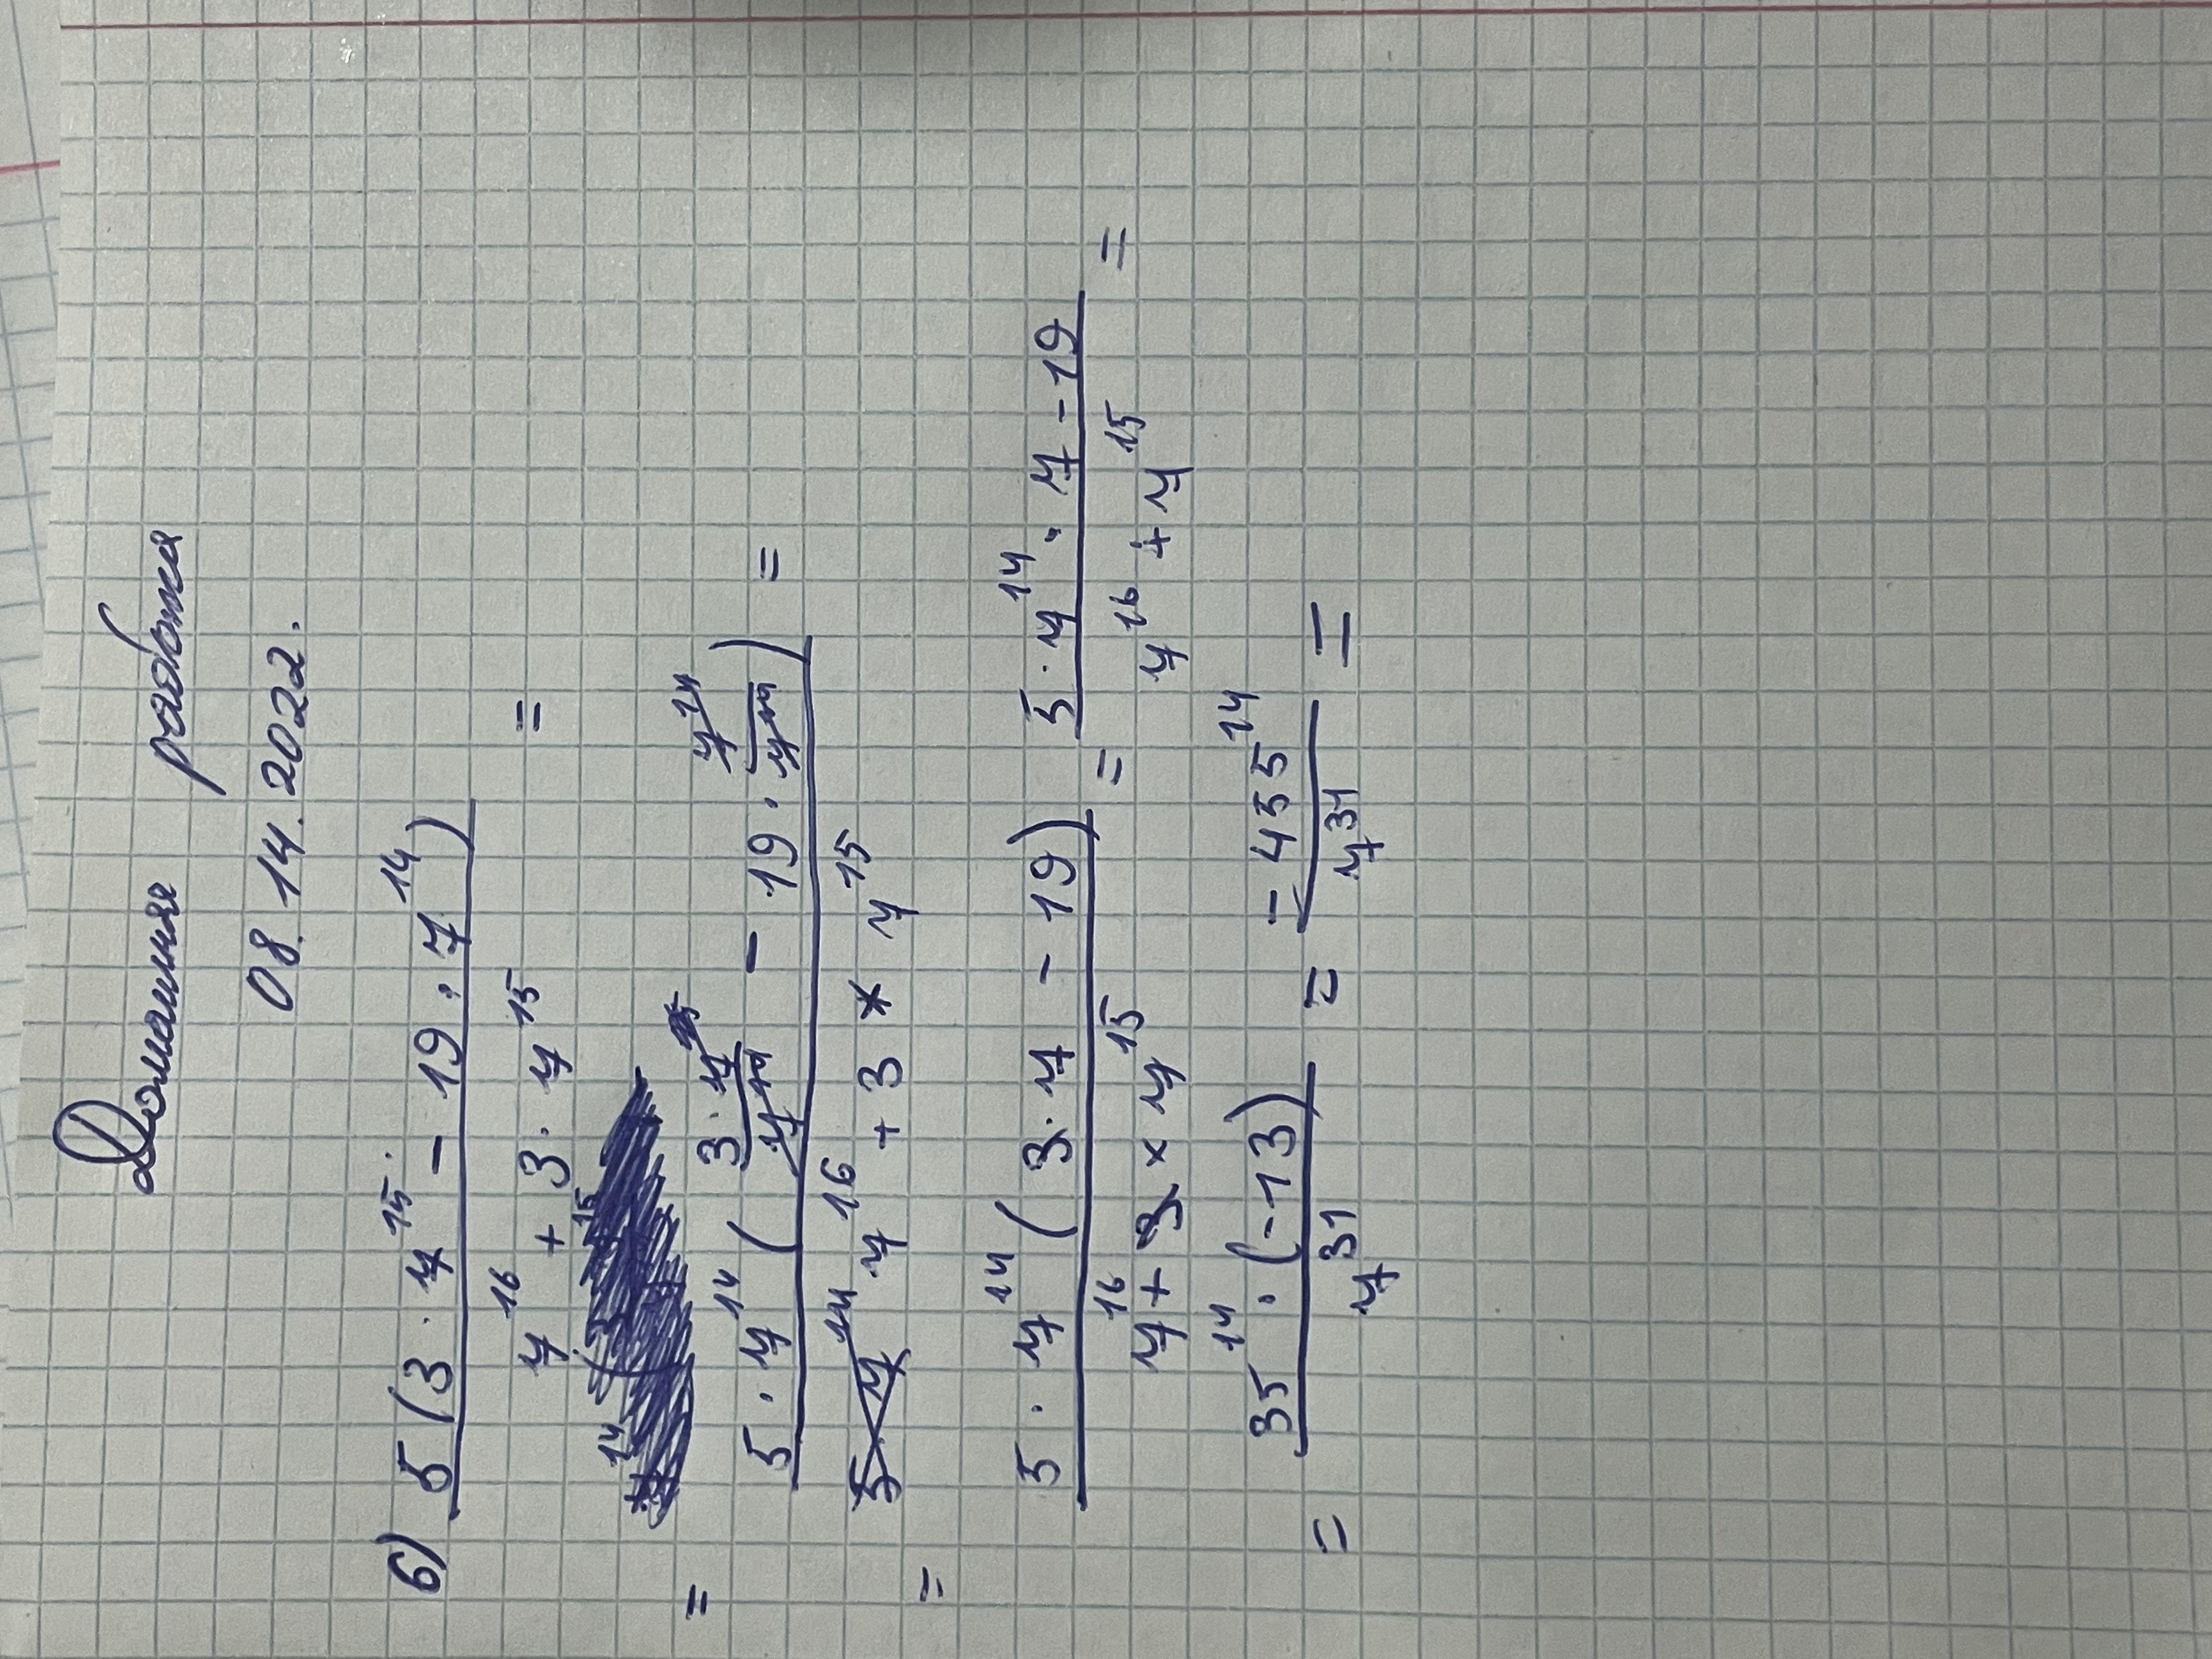 Домашняя работа
08. 14. 2022.
6) 5(3 · 7^15 - 19 · 7^14) / 7^16 + 3 · 7^15 =
= 5 · 7^14 (3 · 7^15 / 7^14 - 19 · 7^14 / 7^14) / 7^16 + 3 * 7^15 =
= 5 · 7^14 (3 · 7 - 19) / 7^16 + 3 × 7^15 = 5 · 7^14 · 7 - 19 / 7^16 + 7^15 =
= 35^14 · (-13) / 7^31 = - 455^14 / 7^31 =